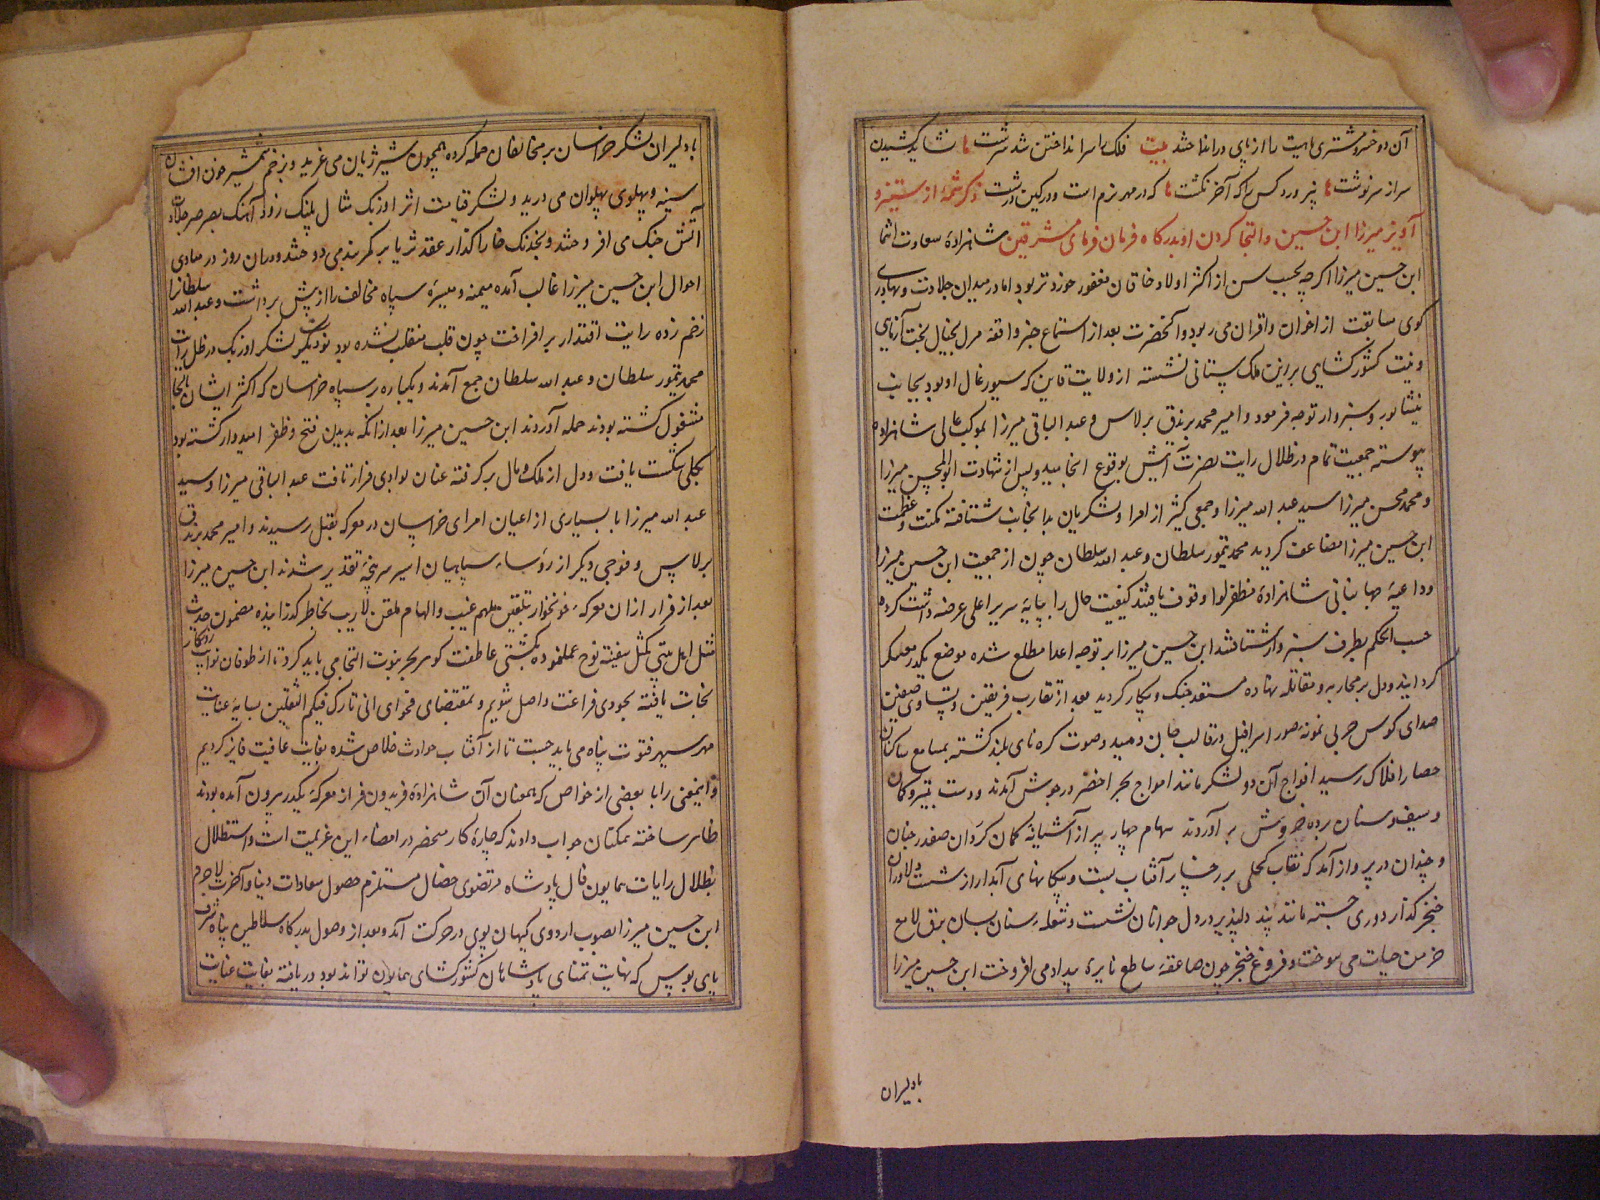 آن دو خسرو مشتری ماهیت را از پای در انداختند بیت فلک را سر انداختن شد سرشت نشاید کشیدن
سر از سرنوشت نپرورد کس را که آخر نکشت که در مهر نرم است و در کین درشت ذکر شمهٔ از ستیز و
آویز میرزا ابن حسین و التجا کردن او بدرگاه فرمان فرمای مشرقین شاهزادهٔ سعادت انتما
ابن حسین میرزا اگرچه بحسب سن از اکثر اولاد خاقان مغفور خوردتر بود اما در میدان جلادت و بهادری
کوی مسابقت از اخوان و اقران می ربود و آنحضرت بعد از استماع خبر واقعه مرل بخیال بخت آزمایی
و نیت کشورکشایی بر زین ملک ستانی نشسته از ولایت قاین که سیورغال او بود بجانب
نیشابور و سبزوار توجه فرمود و امیر محمد برندق برلاس و عبد الباقی میرزا بموکب عالی شاهزاده
پیوسته جمعیت تمام در ظلال رایت نصرت آیتش بوقوع انجامید و پس از شهادت ابوالمحسن میرزا
و محمد محسن میرزا سید عبد الله میرزا و جمعی کثیر از امرا و لشکریان بدانجانب شتافته مکنت و عظمت
ابن حسین میرزا مضاعف گردید محمد تیمور سلطان و عبد الله سلطان چون از جمعیت ابن حسین میرزا
و داعیهٔ جهانبانی شاهزادهٔ مظفر لوا وقوف یافتند کیفیت حال را بپایهٔ سریر اعلی عرضه داشت کرده
حسب الحکم بطرف سبزوار شتافتند ابن حسین میرزا بر توجه اعدا مطلع شده موضع یکدر معسکر
گردانید و دل بر محاربه و مقاتله نهاده مستعد جنک و پیکار گردید بعد از تقارب فریقین و تساوی صفین
صدای کوس حربی نمونه صور اسرافیل در قالب جان دمید و صوت کره نای بلند گشته بمسامع ساکنان
حصار افلاک رسید افواج آن دو لشکر مانند امواج بحر اخضر در جوش آمدند و دست بتیر و کمان
و سیف و سنان برده خروش بر آوردند سهام چهار پر از آشیانهٔ کمان گردان صفدر چنان
و چندان در پرواز آمد که نقاب کحلی بر رخسار آفتاب بست و پیکانهای آبدار از شست دلاوران
خنجر گذار دوری جسته مانند پند دلپذیر در دل جوانان نشست و شعلهٔ سنان بسان برق لامع
خرمن حیات می سوخت و فروغ خنجر چون صاعقهٔ ساطع نایرهٔ بیداد می افروخت ابن حسین میرزا
بادلیران
بادلیران لشکر خراسان بر مخالفان حمله کرده همچون شیر ژیان می غرید و بزخم شمشیر خون افشان
سینه و پهلوی پهلوان می درید و لشکر قیامت اثر اوزبک مثال پلنک زود آهنک بصرصر جلادت
آتش جنک می افروختند و بخدنک خارا گذار عقد ثریا بر کمر بند می دوختند و در آن روز در مبادی
احوال ابن حسین میرزا غالب آمده میمنه و میسرهٔ سپاه مخالف را از پیش برداشت و عبد الله سلطانرا
زخم زده رایت اقتدار بر افراخت چون قلب منقلب نشده بود نوبت دیگر لشکر اوزبک در ظل رایت
محمد تیمور سلطان و عبد الله سلطان جمع آمدند و یکباره بر سپاه خراسان که اکثر ایشان بالجا
مشغول گشته بودند حمله آوردند ابن حسین میرزا بعد از آنکه بدیدن فتح و ظفر امیدوار گشته بود
بکلی شکست یافت و دل از ملک و مال بر گرفته عنان بوادی فرار تافت عبد الباقی میرزا و سید
عبد الله میرزا با بسیاری از اعیان امرای خراسان در معرکه بقتل رسیدند و امیر محمد برندق
برلاس و فوجی دیگر از رؤساء سپاهیان اسیر سرپنجهٔ تقدیر شدند ابن حسین میرزا
بعد از فرار از آن معرکهٔ خونخوار بتلقین ملهم غیب و الهام ملقن لاریب بخاطر گذرانیده مضمون حدیث
مثل اهل بیتی کمثل سفینة نوح عمل نموده بکشتی عاطفت گوهر بحر نبوت التجا می باید کرد تا از طوفان نوایب روزگار
نجات یافته بجودی فراغت واصل شویم و بمقتضای فحوای انی تارک فیکم الثقلین بسایهٔ عنایت
مهر سپهر فتوت پناه می باید جست تا از آفتاب حوادث خلاص شده بغایت عافیت فایز گردیم
و اینمعنی را با بعضی از خواص که همعنان آن شاهزادهٔ فریدون فر از معرکهٔ یکدر بیرون آمده بودند
ظاهر ساخته همکنان جواب دادند که چارهٔ کار منحصر در امضاء این عزیمت است و استظلال
بظلال رایات همایون فال پادشاه مرتضوی خصال مستلزم حصول سعادات دنیا و آخرت لاجرم
ابن حسین میرزا بصوب اردوی کیهان پوی در حرکت آمد و بعد از وصول بدرگاه سلاطین پناه شرف
پای بوس که نهایت تمنای پادشاهان کشورکشای همایون تواند بود دریافته بغایت عنایت